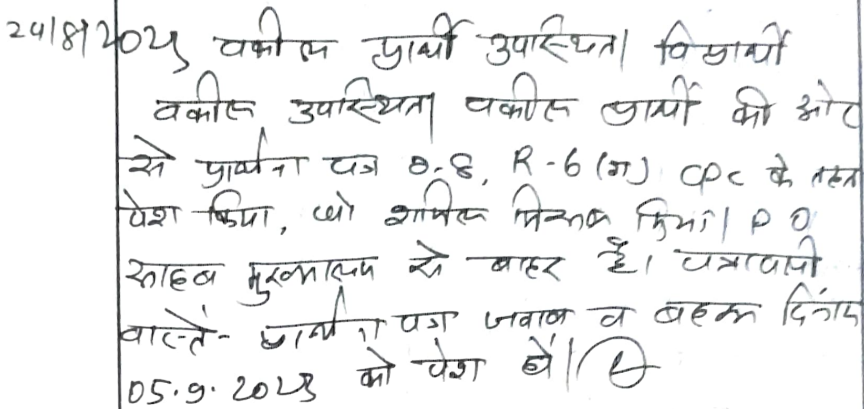 24/8/2023 वकील प्रार्थी उपस्थित। विप्रार्थी
वकील उपस्थित। वकील प्रार्थी की ओर
से प्रार्थना पत्र O-8, R-6 (ग) CPC के तहत
पेश किया, जो शामिल मिसल किया। P O
साहब मुख्यालय से बाहर है। पत्रावली
वास्ते- प्रार्थना पत्र जवाब व बहस दिनांक
05.9.2023 को पेश हो।